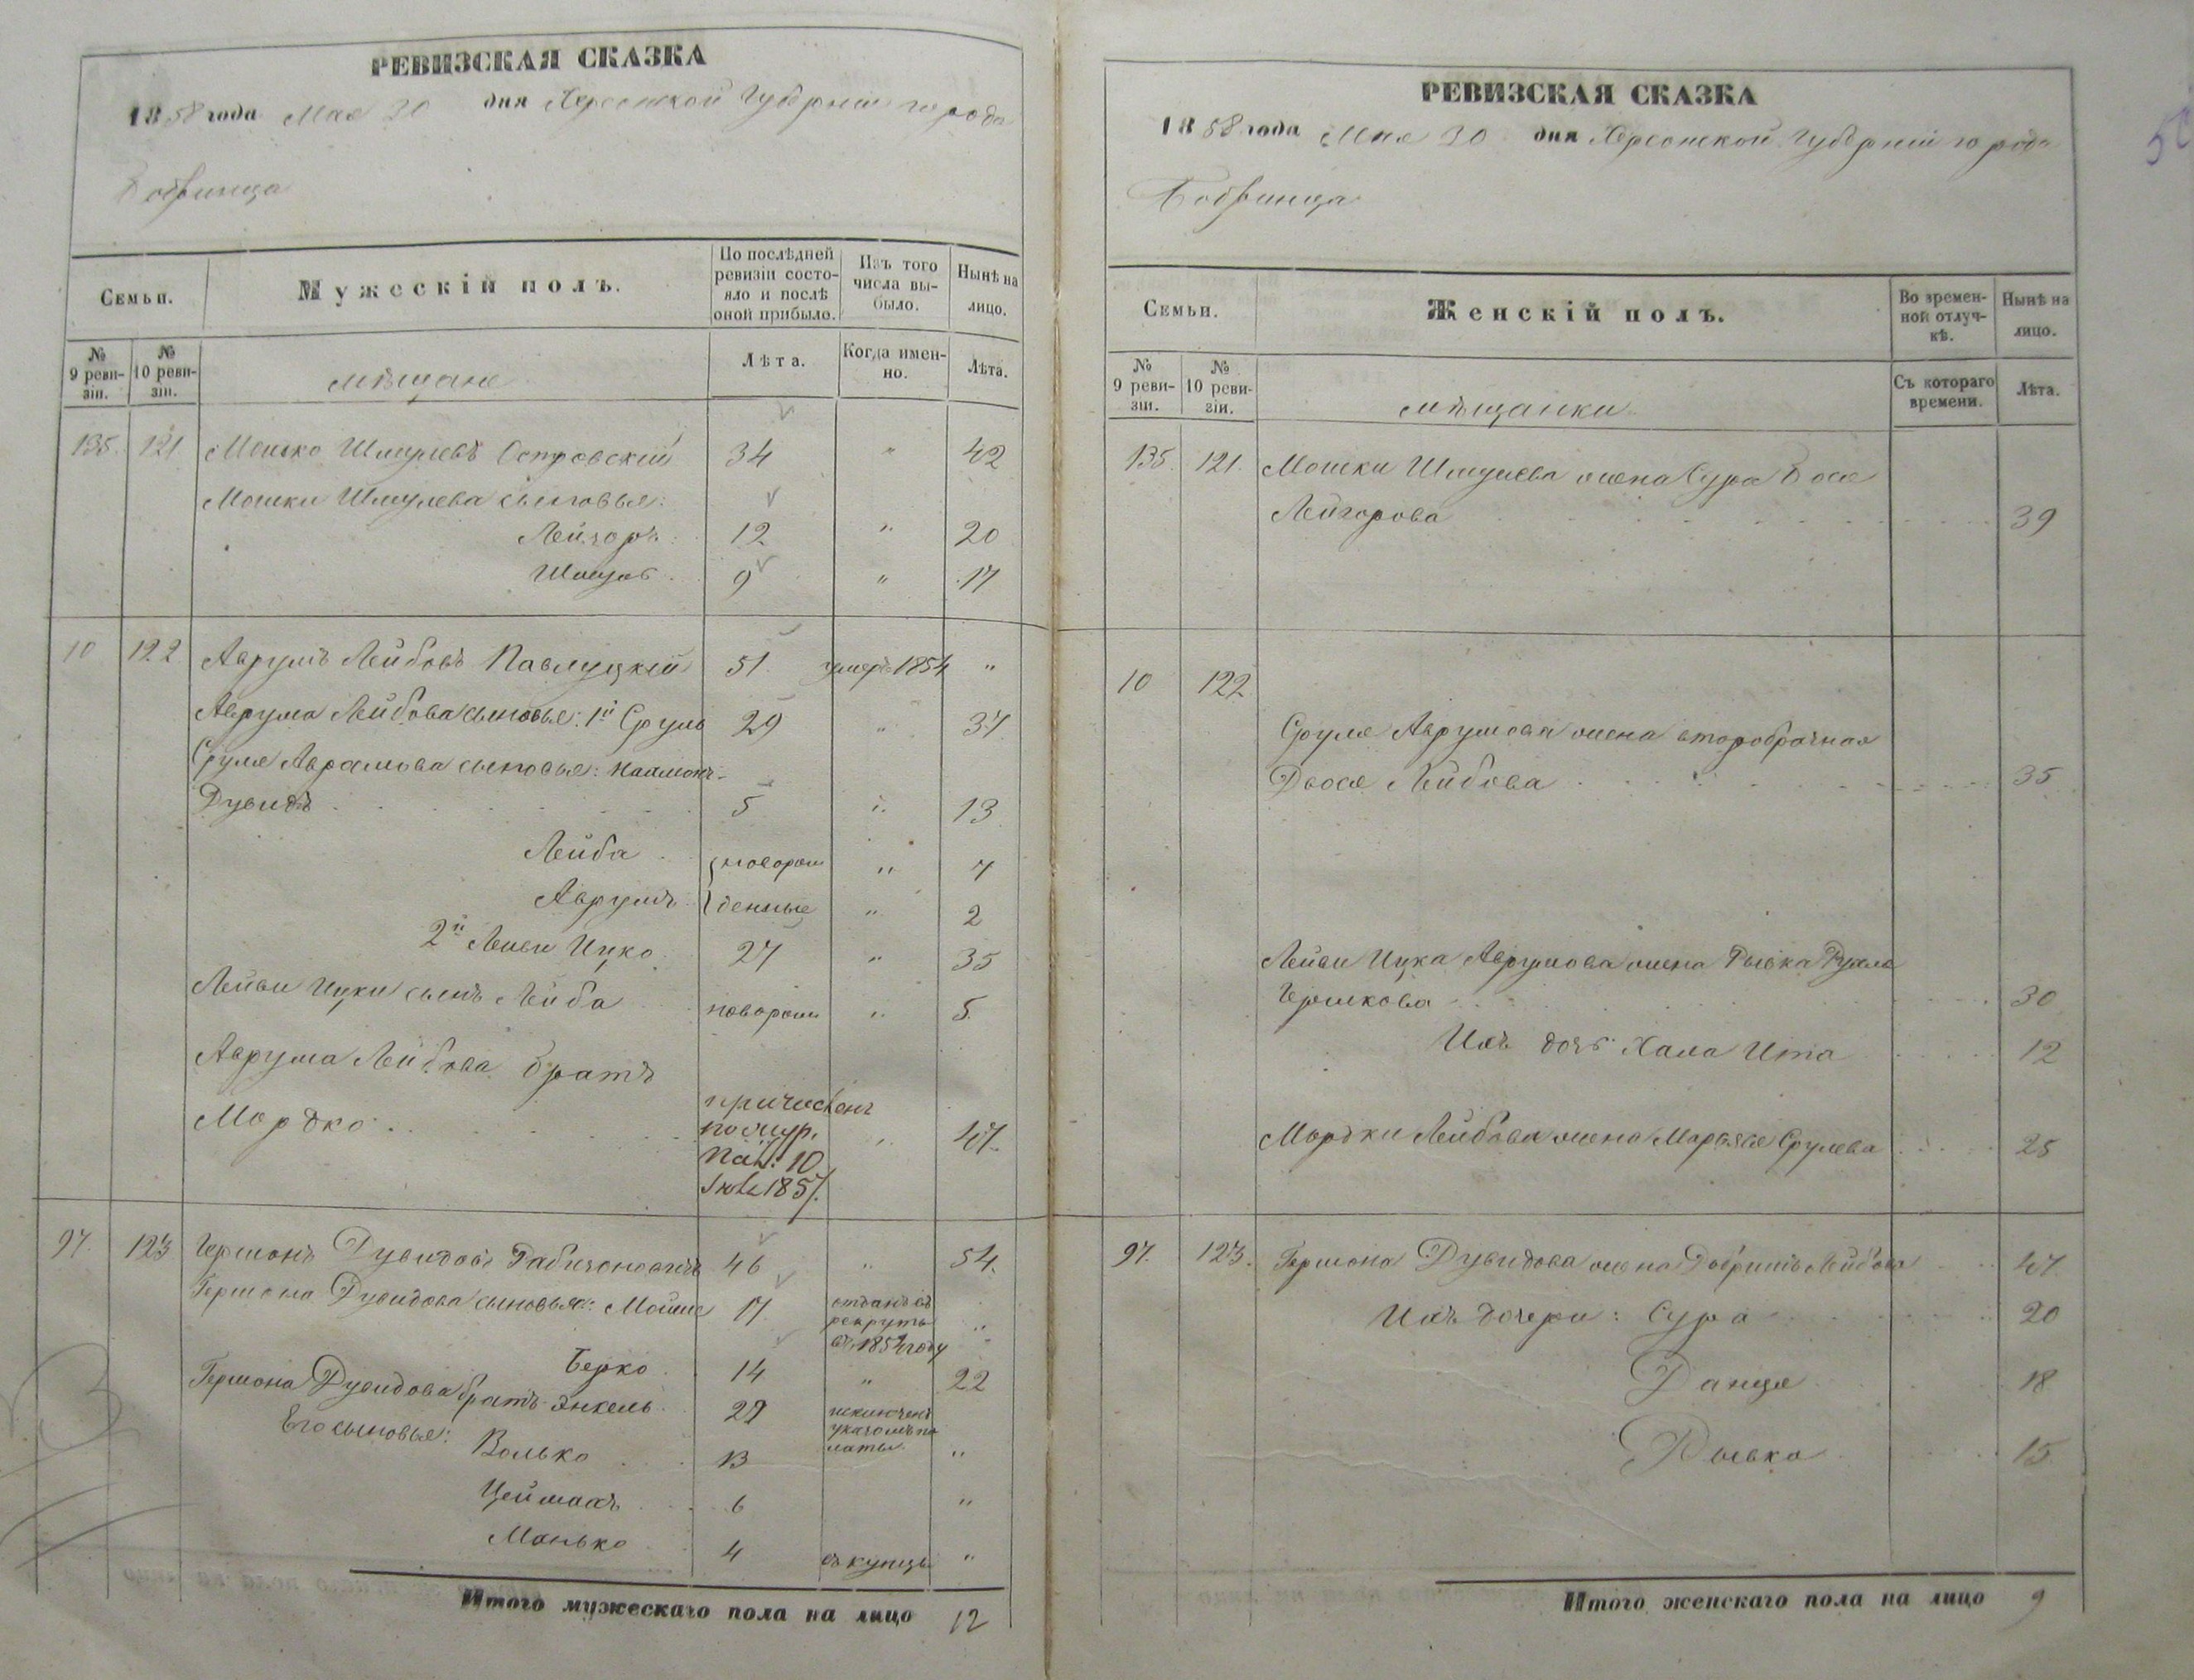 РЕВИЗСКАЯ СКАЗКА
1858 года Мая 30 дня Херсонской Губернии города
Бобринца
Семьи.
Мужескій полъ.
По послѣдней ревизіи состояло и послѣ оной прибыло.
Изъ того числа выбыло.
Нынѣ на лицо.
№ 9 ревизіи.
№ 10 ревизіи.
мѣщане
Лѣта.
Когда именно.
Лѣта.
135. 121 Мошко Шмулевъ Островскій 34 " 42
Мошки Шмулева сыновья:
Лейзоръ 12 " 20
Шмуль 9 " 17
10 122 Аврумъ Лейбовъ Павлуцкій 51. умеръ 1854 "
Аврума Лейбова сыновья: 1й Сруль 29 " 37
Сруля Аврамова сыновья:
Дувидъ 5 " 13
Лейба новорож " 7
Аврумъ денные " 2
2й Лейви Ицко 27 " 35
Лейви Ицки сынъ Лейба новорож " 5
Аврума Лейбова братъ
Мордко причисленъ " 47.
по
Пал: 10
1857.
97. 123 Гершонъ Дувидовъ Рабиновичъ 46 " 54.
Гершона Дувидова сыновья: Мойше 17 отданъ въ
рекруты "
въ 1854 году
Берко 14 " 22
Гершона Дувидова братъ Янкель 29 исключенъ
указомъ па
латы "
Его сыновья: Волько 13
Цеймахъ 6 "
Манько 4 въ купцы "
Итого мужескаго пола на лицо 12
РЕВИЗСКАЯ СКАЗКА
1858 года Мая 30 дня Херсонской Губерніи города
Бобринца
Семьи.
Женскій полъ.
Во временной отлучкѣ.
Нынѣ на лицо.
№ 9 ревизіи.
№ 10 ревизіи.
мѣщанки
Съ котораго времени.
Лѣта.
135. 121. Мошки Шмулева жена Сура Бося
Лейзорова 39
10 122
Сруля Аврумова жена второбрачная
Двося Лейбова 35
Лейви Ицка Аврумова жена Рывка Рухля
Гершкова 30
Ихъ дочь Хана Ита 12
Мордки Лейбова жена Марьяся Срулева 25
97. 123. Гершона Дувидова жена Добришъ Лейбова 47
Ихъ дочери: Сура 20
Данця 18
Рывка 15
Итого женскаго пола на лицо 9